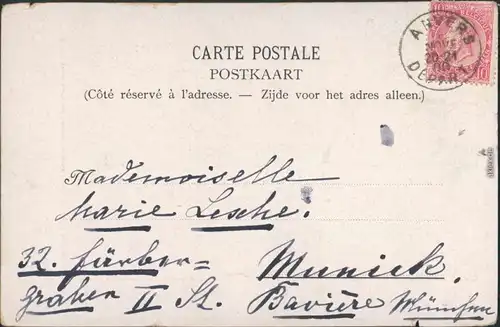 CARTE POSTALE
POSTKAART
(Côté réservé à l'adresse. — Zijde voor het adres alleen.)
ANVERS
DÉPART
10
Mademoiselle
Marie Lesche.
32. Färber=
graben II St.
Munich.
Bavière München